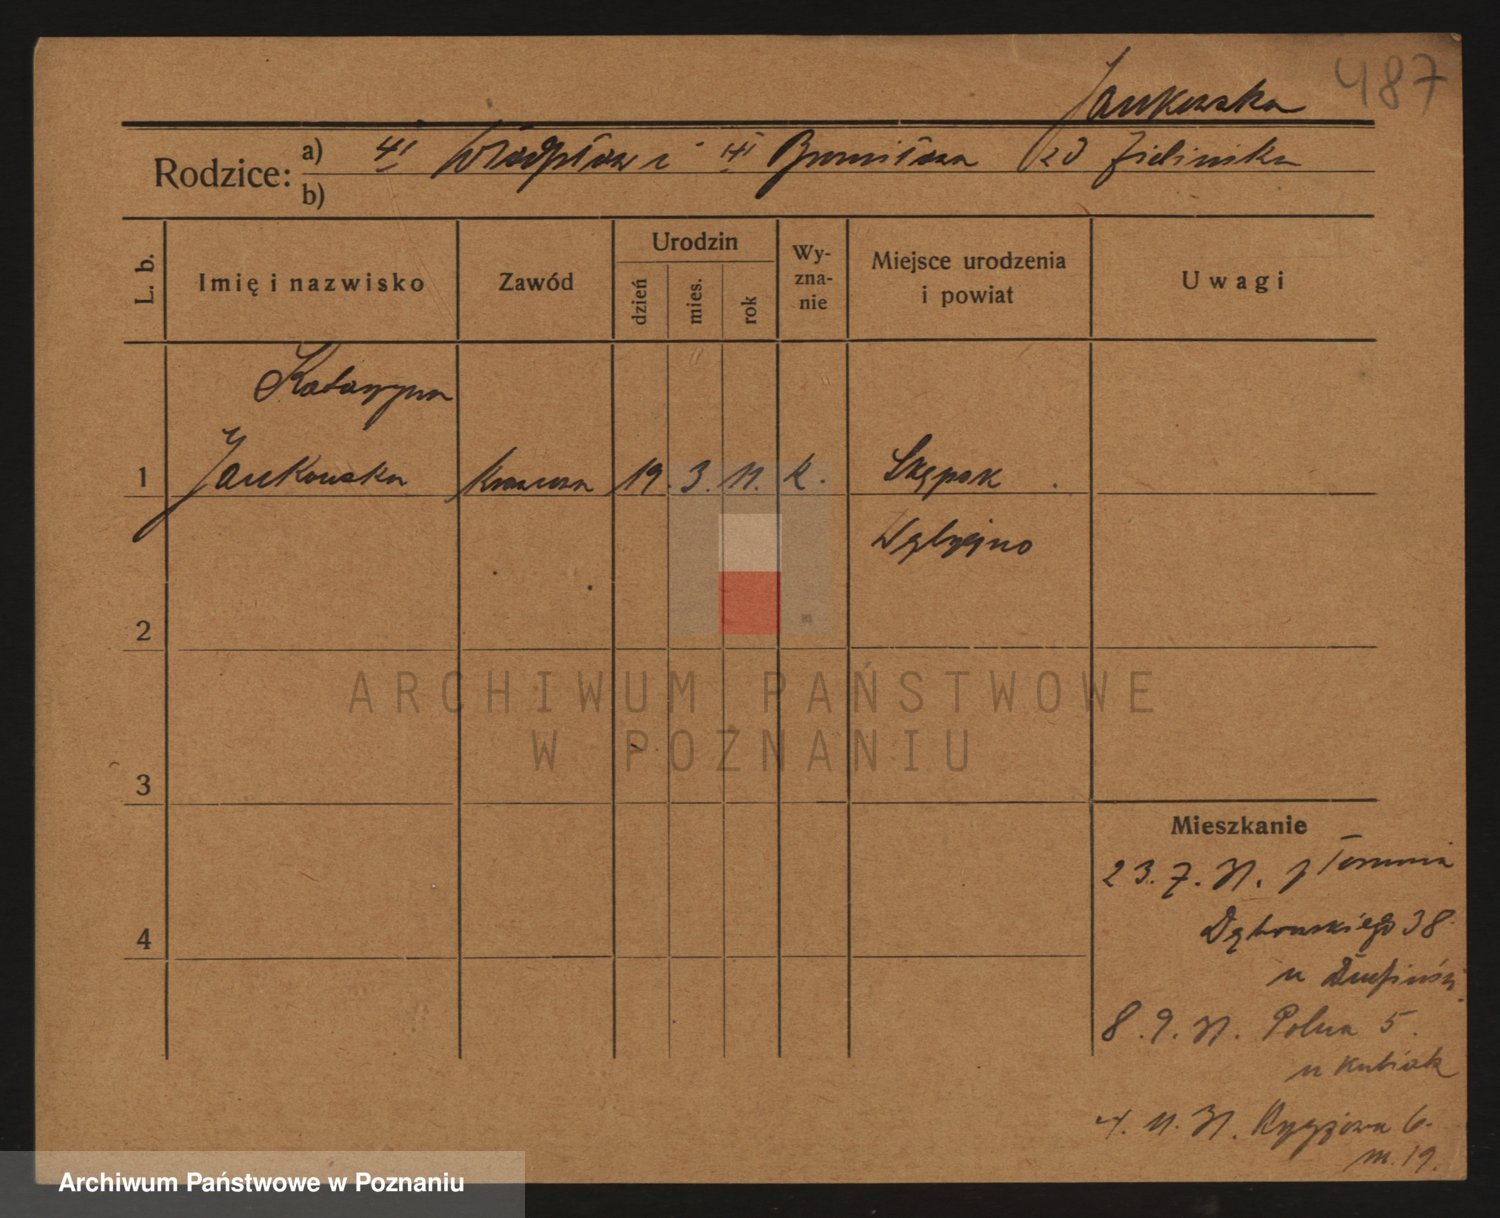 487
Jankowska
Rodzice: a) Władysław i Bronisława zd Zielińska
b)
L. b.
Imię i nazwisko
Zawód
Urodzin
dzień
mies.
rok
Wy-
zna-
nie
Miejsce urodzenia
i powiat
Uwagi
Katarzyna
1 Jankowska krawcowa 19. 3. 11. k.
Wąbrzeźno
2
ARCHIWUM PAŃSTWOWE
W POZNANIU
3
Mieszkanie
23.7.31. z Torunia
4
Dąbrowskiego 38
u
8.9.31. Polna 5.
u Kubiak
4. 11. 31. 6.
m. 19.
Archiwum Państwowe w Poznaniu